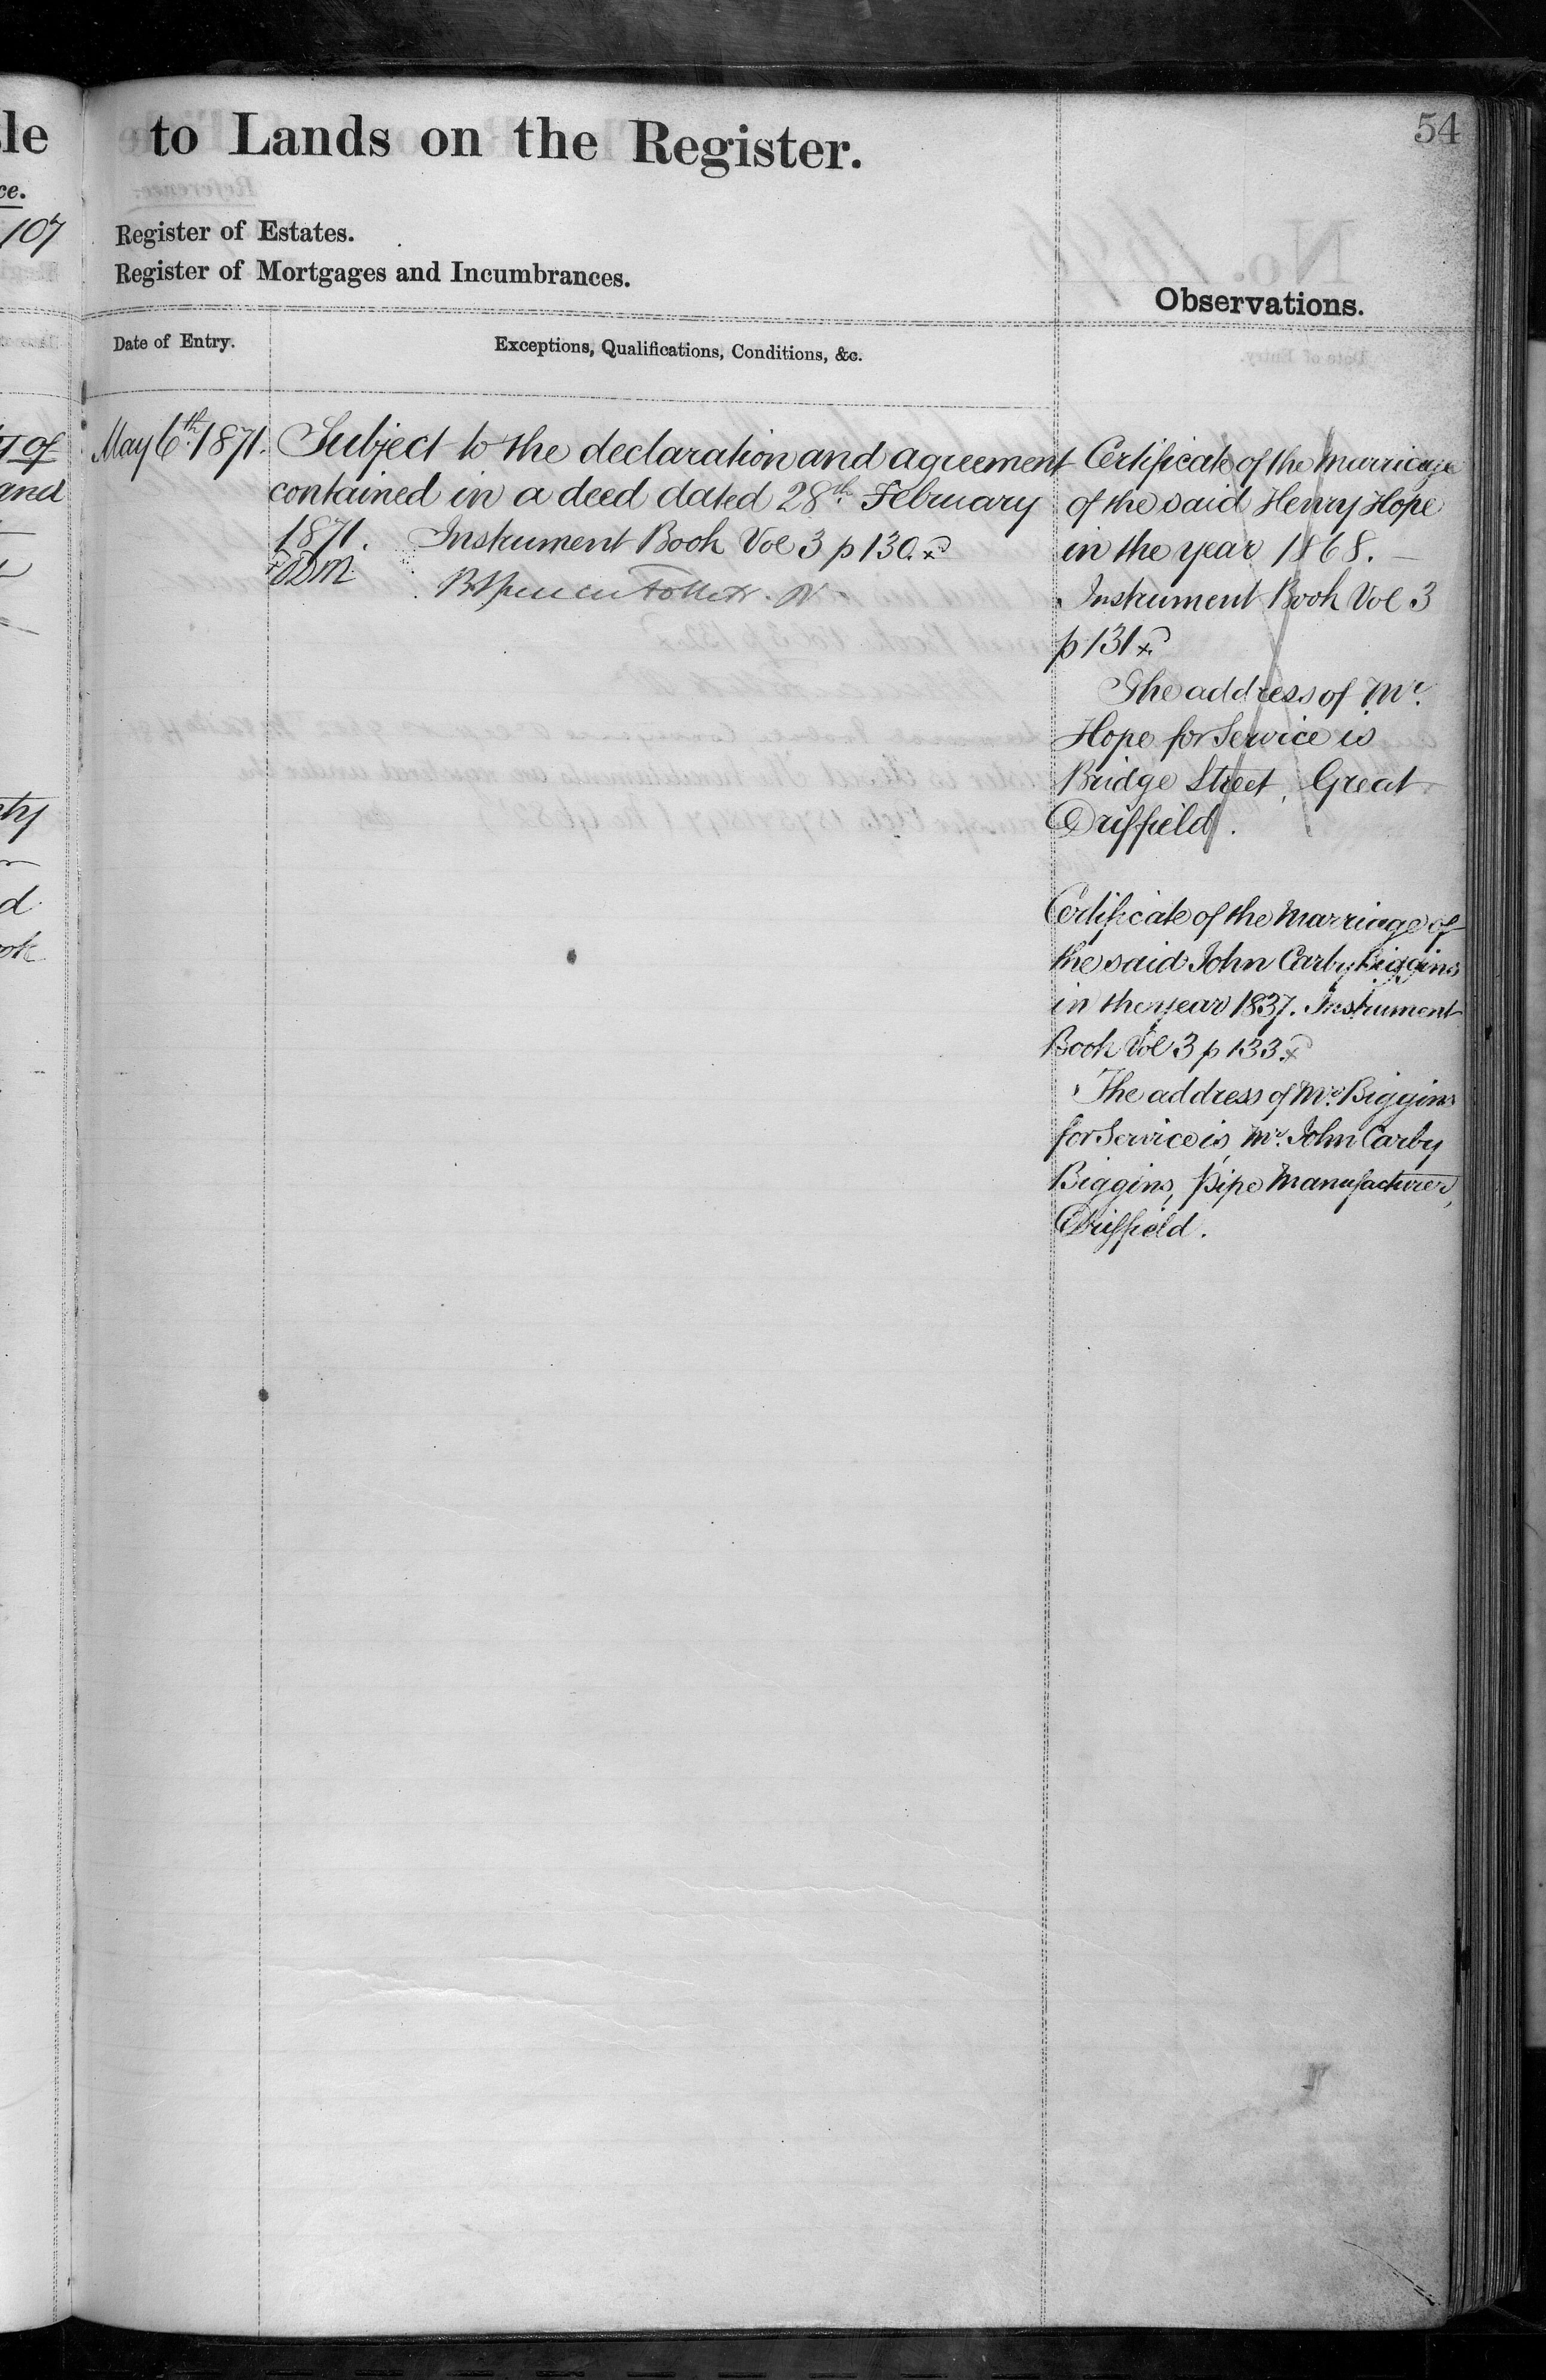 54
le to Lands on the Register.
ce.
107
Register of Estates.
Register of Mortgages and Incumbrances.
Observations.
Date of Entry.
Exceptions, Qualifications, Conditions, &c.
May 6th 1871.
Subject to the declaration and agreement
contained in a deed dated 28th February
1871. Instrument Book Vol 3 p 130.
B Spencer Follett. R
Certificate of the Marriage
of the said Henry Hope
in the year 1868. —
Instrument Book Vol 3
p 131
The address of Mr.
Hope for Service is
Bridge Street, Great
Driffield.
Certificate of the Marriage of
the said John Carby Biggins
in the year 1837. Instrument
Book Vol 3 p 133
The address of Mr. Biggins
for Service is, Mr. John Carby
Biggins, Pipe Manufacturer,
Driffield.
of
and
ty
d
ok